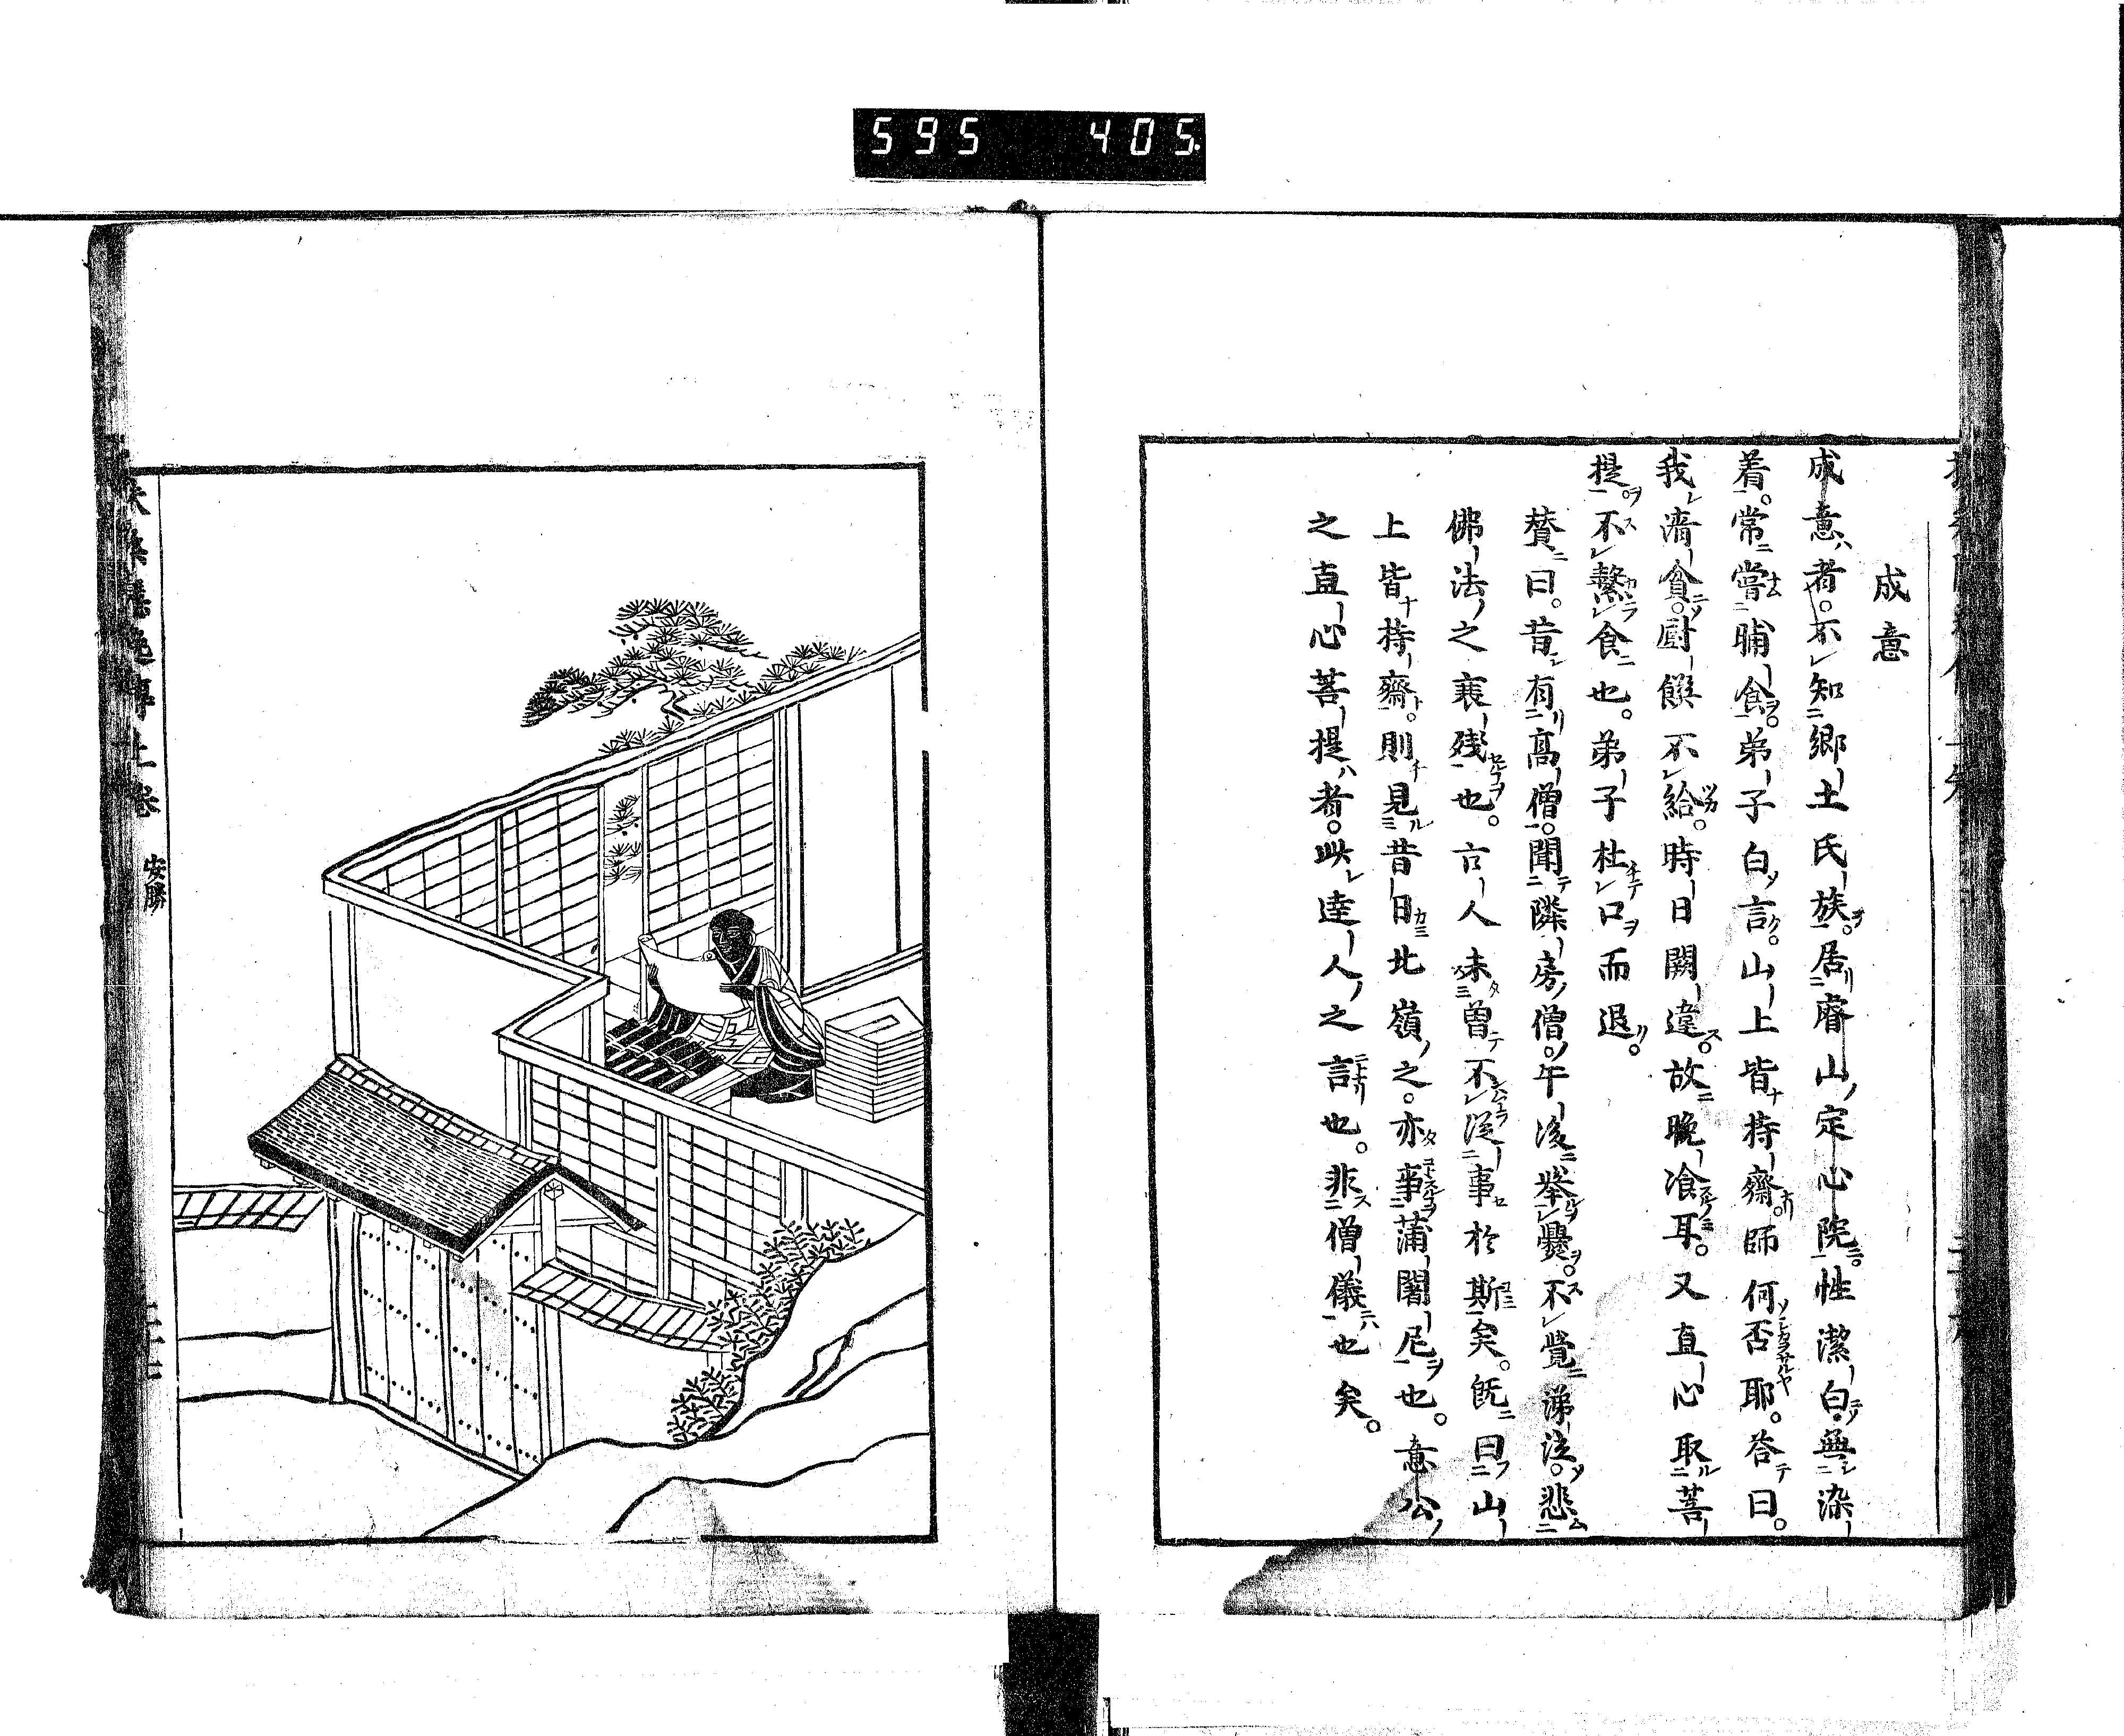 595 405
成意
成意者。不知鄉土氏族。居睿山定心院。性潔白。無染
着。常嘗晡食。弟子白言。山上皆持齋。師何否耶。答曰。
我濟貧。厨饌不給。時日闕違。故晚飡耳。又直心取菩
提。不熬食也。弟子杜口而退。
賛曰。昔有高僧。聞隣房僧。午後舉爨。不覺涕泣。悲
佛法之衰殘也。古人未曾不從事於斯矣。既曰山
上皆持齋。則見昔日北嶺之。亦事蒲闍尼也。意公
之直心菩提者。此達人之言也。非僧儀也矣。
扶桑隱逸傳上卷 安勝